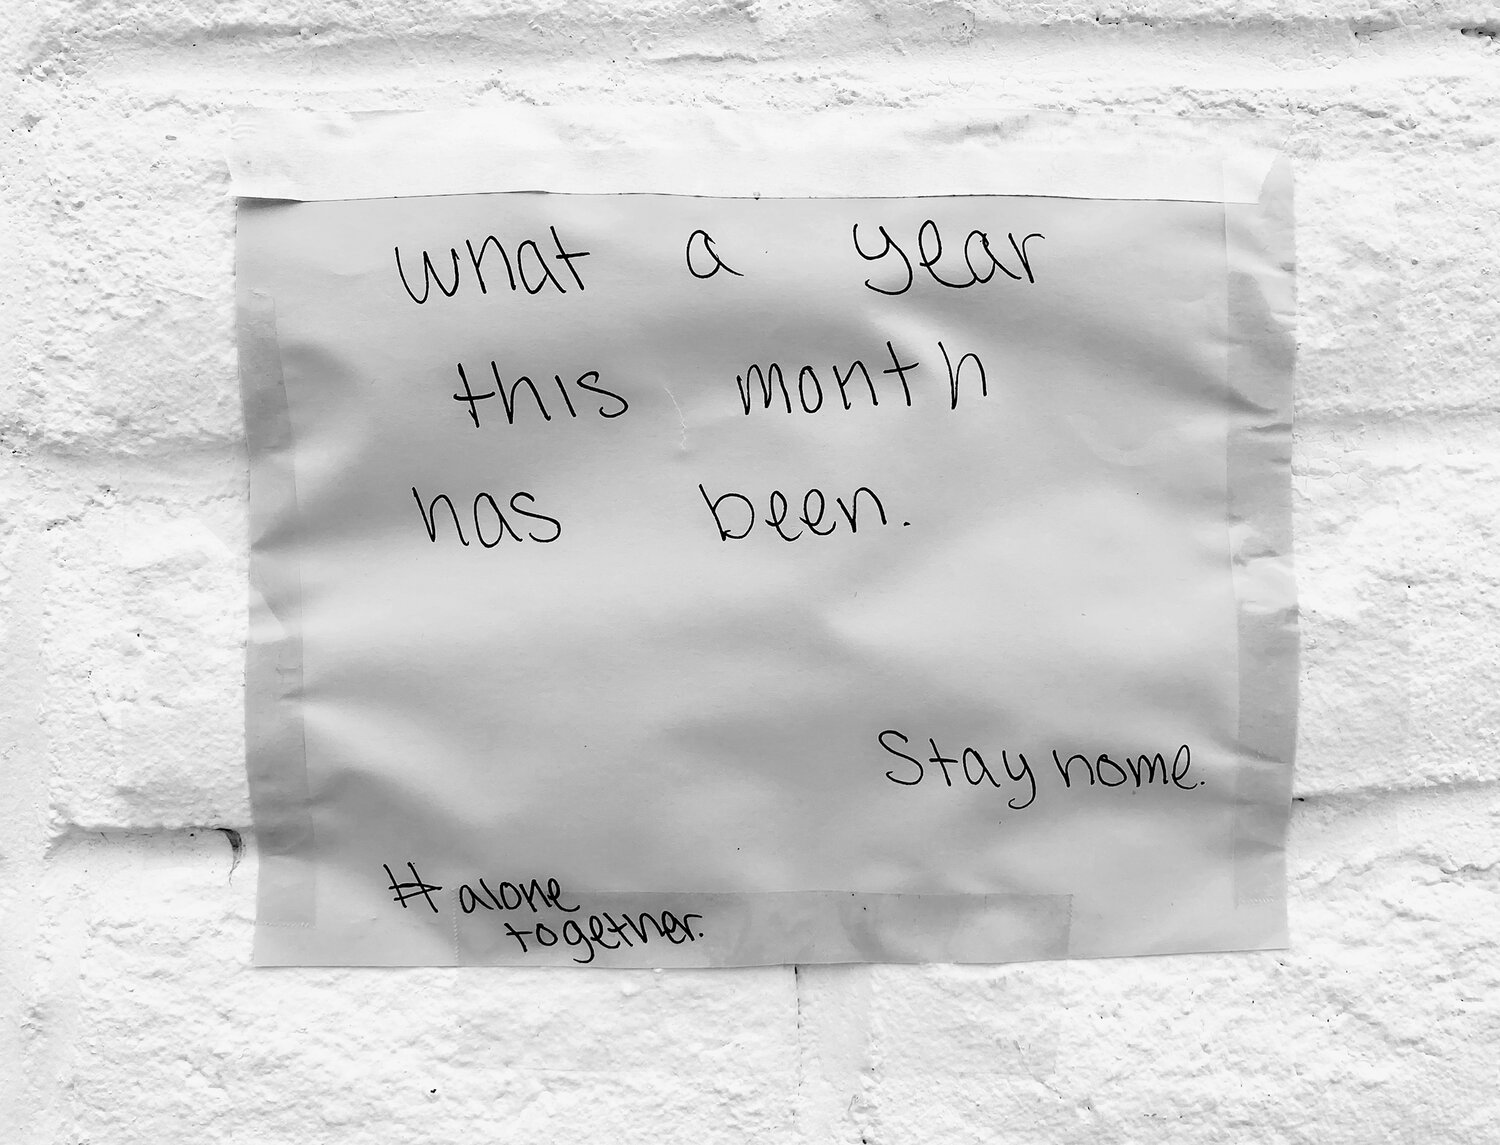 what a year
this month
has been.
Stay home.
#alone
together.